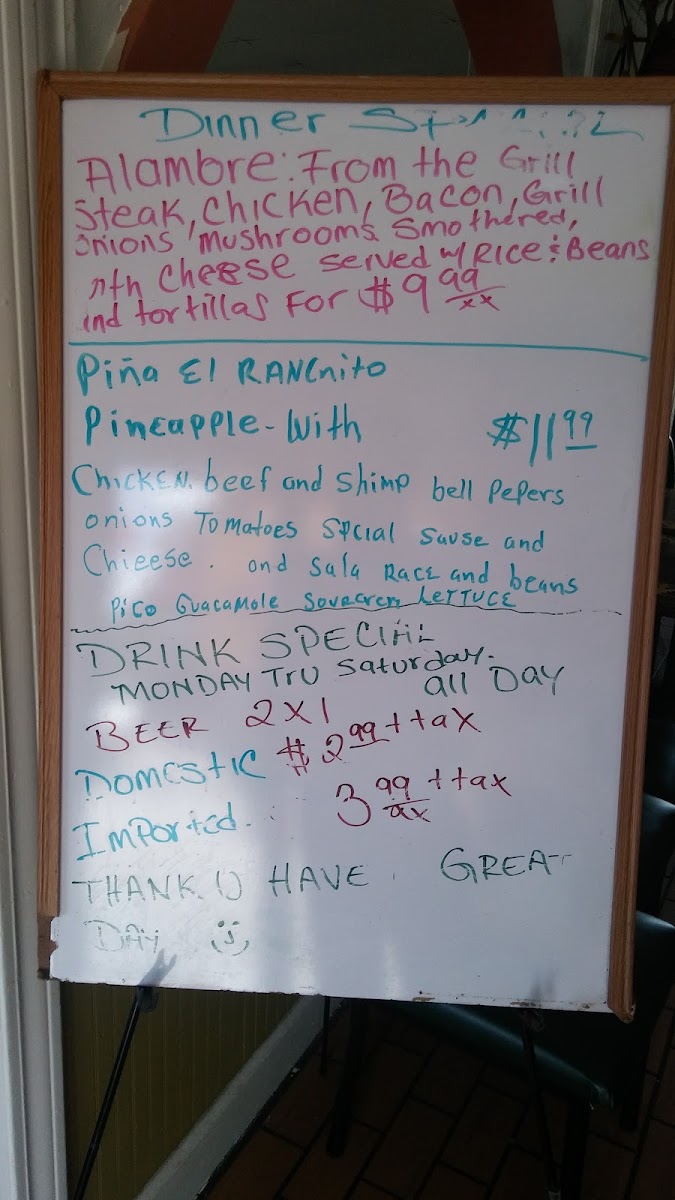 Dinner
Alambre: From the Grill
Steak, Chicken, Bacon, Grill
onions, mushrooms smothered,
with cheese served w/ Rice & Beans
and tortillas For $9 99/xx
Piña El RANChito
Pineapple-With $11 99
Chicken. beef and Shimp bell Pepers
onions Tomatoes Spcial Sause and
Chieese. and Sala Race and beans
Pico Guacamole Sovecrem LETTUCE
DRINK SPECIAL
MONDAY TRU Saturday.
all Day
BEER 2x1
DOMESTIC $2 99 + tax
Imported. 3 99/xx + tax
THANK U HAVE GREAT
DAY